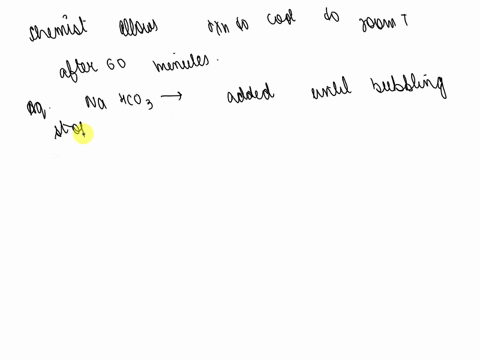 chemist allows rxn to cool to room T
after 60 minutes.
Aq. NaHCO3 → added until bubbling
stop